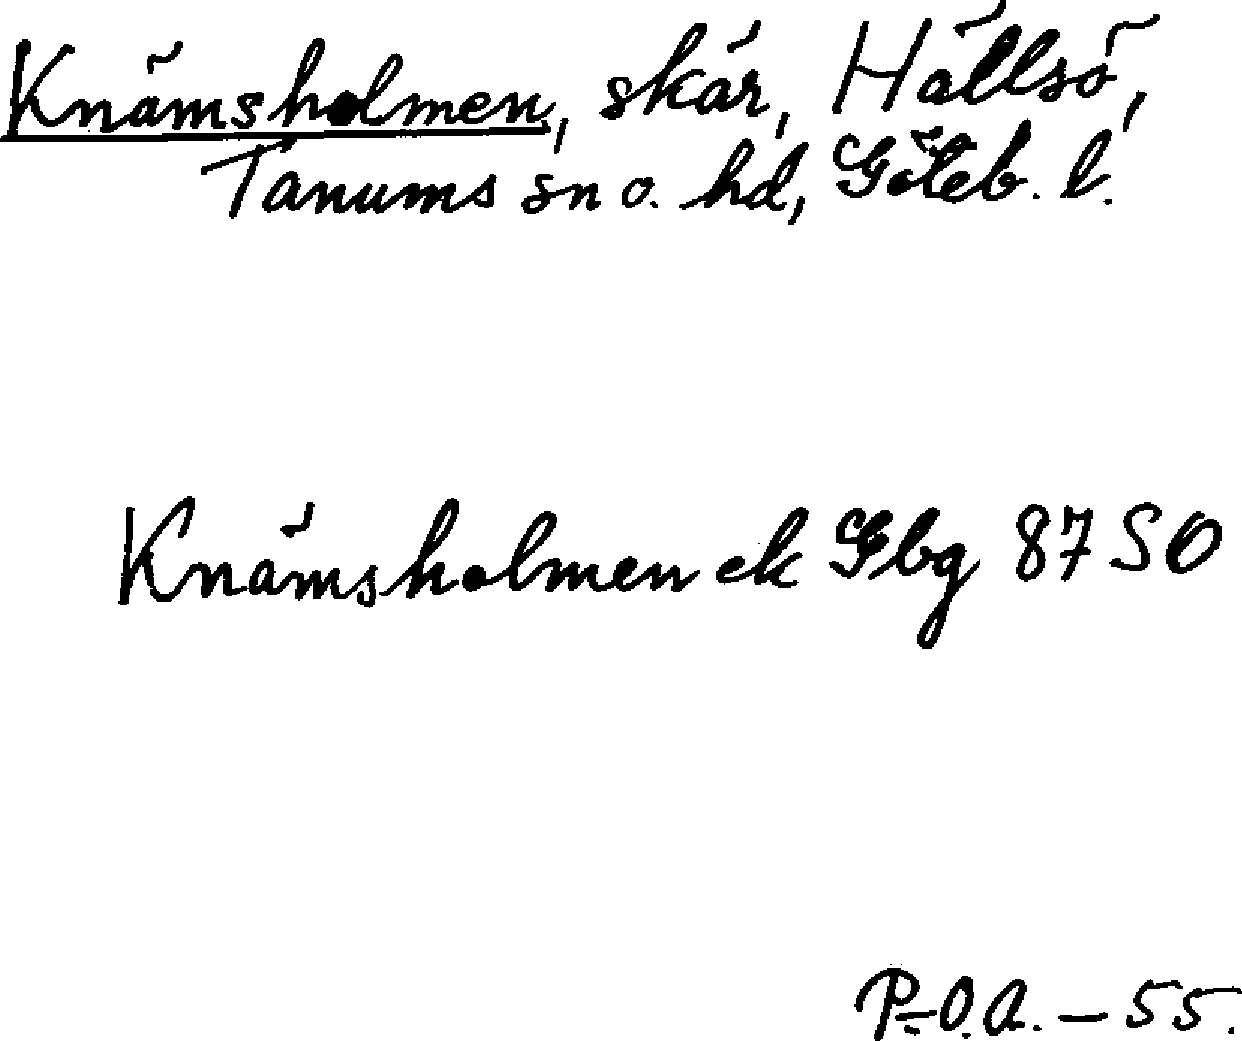 Knämsholmen, skär, Hällsö,
Tanums sn o. hd, Göteb. l.
Knämsholmen ek Gbg 87 SO
P-O.A. – 55.